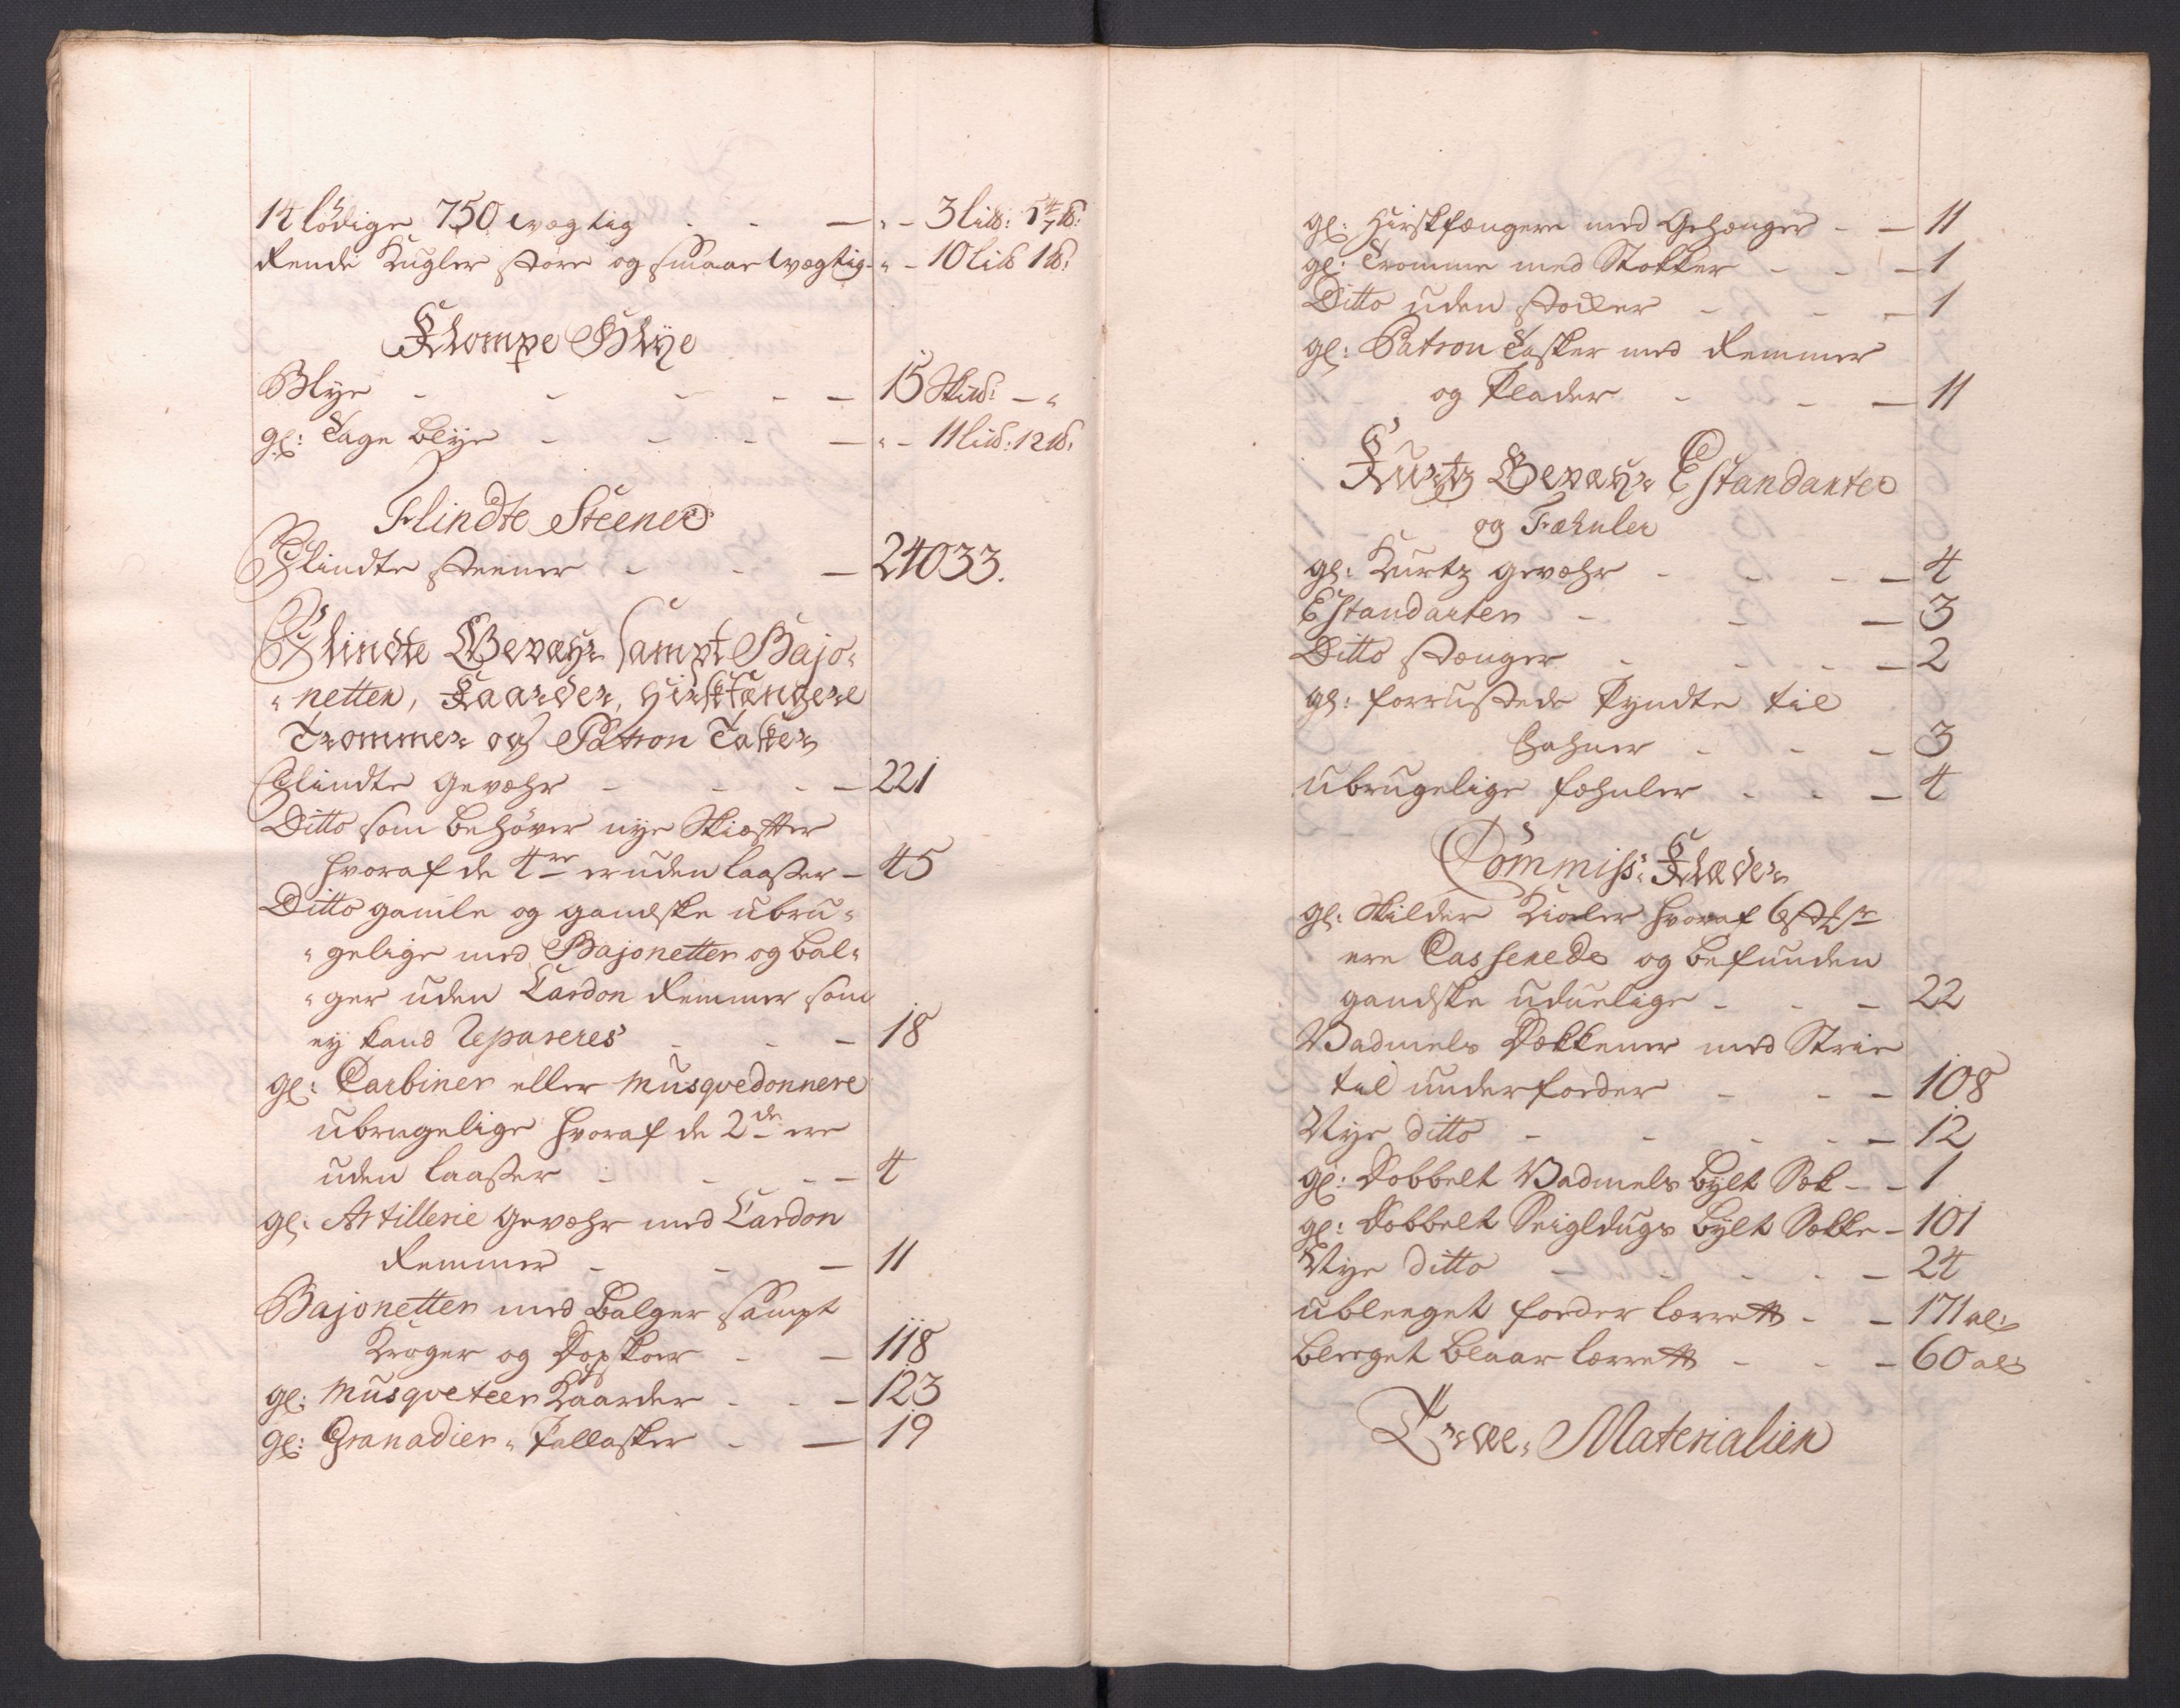 14 lödige 750 wægtig - - — " - 3 lis℔: 5 4/7 ℔:
Rende Kugler store og smaae wægtig - " - 10 Lis℔ 1℔:
Klompe Blye
Blye - - - - — 15 Skis℔: — "
gl: Tage blye - - - — " - 11 lis℔: 12℔:
Flindte Steener
Flindte steener - - — 24033.
Flindte Gevæhr sampt Bajo-
"netter, Kaarder, Hirskfængere
Trommer og Patron Tasker
Flindte gevæhr - - - — 221
Ditto som behøver nye Skiæffter
hvoraf de 4re er uden laasser — 45
Ditto gamle og gandske ubru-
"gelige med Bajonetter og bal-
"ger uden Cardon Remmer som
ey kand Repareres - - — 18
gl: Carbiner eller musqvedonnere
ubrugelige hvoraf de 2de ere
uden laasser - - - — 4
gl: Artillerie gevæhr med Cardon
Remmer - - — 11
Bajonetter med balger sampt
Kroger og Dopskoer - — 118
gl: musqveteer Kaarder - - — 123
gl: Granadier-Pallasker - — 19
gl: Hirskfængere med Gehænger - — 11
gl: Tromme med Stokker - - — 1
Ditto uden stocker - - — 1
gl: Patron Tasker med Remmer
og Plader - - — 11
Kurtz Gevæhr Estandarter
og Fæhnler
gl: Kurtz gevæhr - - - — 4
Estandarter - - — 3
Ditto stænger - - - — 2
gl: forrustede Pyndte til
fahner - - — 3
ubrugelige fæhnler - - — 4
Commiss: Klæder
gl: Skilder Kioler hvoraf 6
ere Casserede og befunden
gandske uduelige - - — 22
Vadmels Dækkener med Strie
til underfoeder - - — 108
Nye ditto - - - - — 12
gl: Dobbelt Vadmels bylt Sæk - - 1
gl: Dobbelt Seigldugs bylt Sække - 101
Nye ditto - - - - — 24
ubleeget foeder lærrett - — 171 al:
bleeget blaar lærrett - - — 60 al:
Træe-Materialier